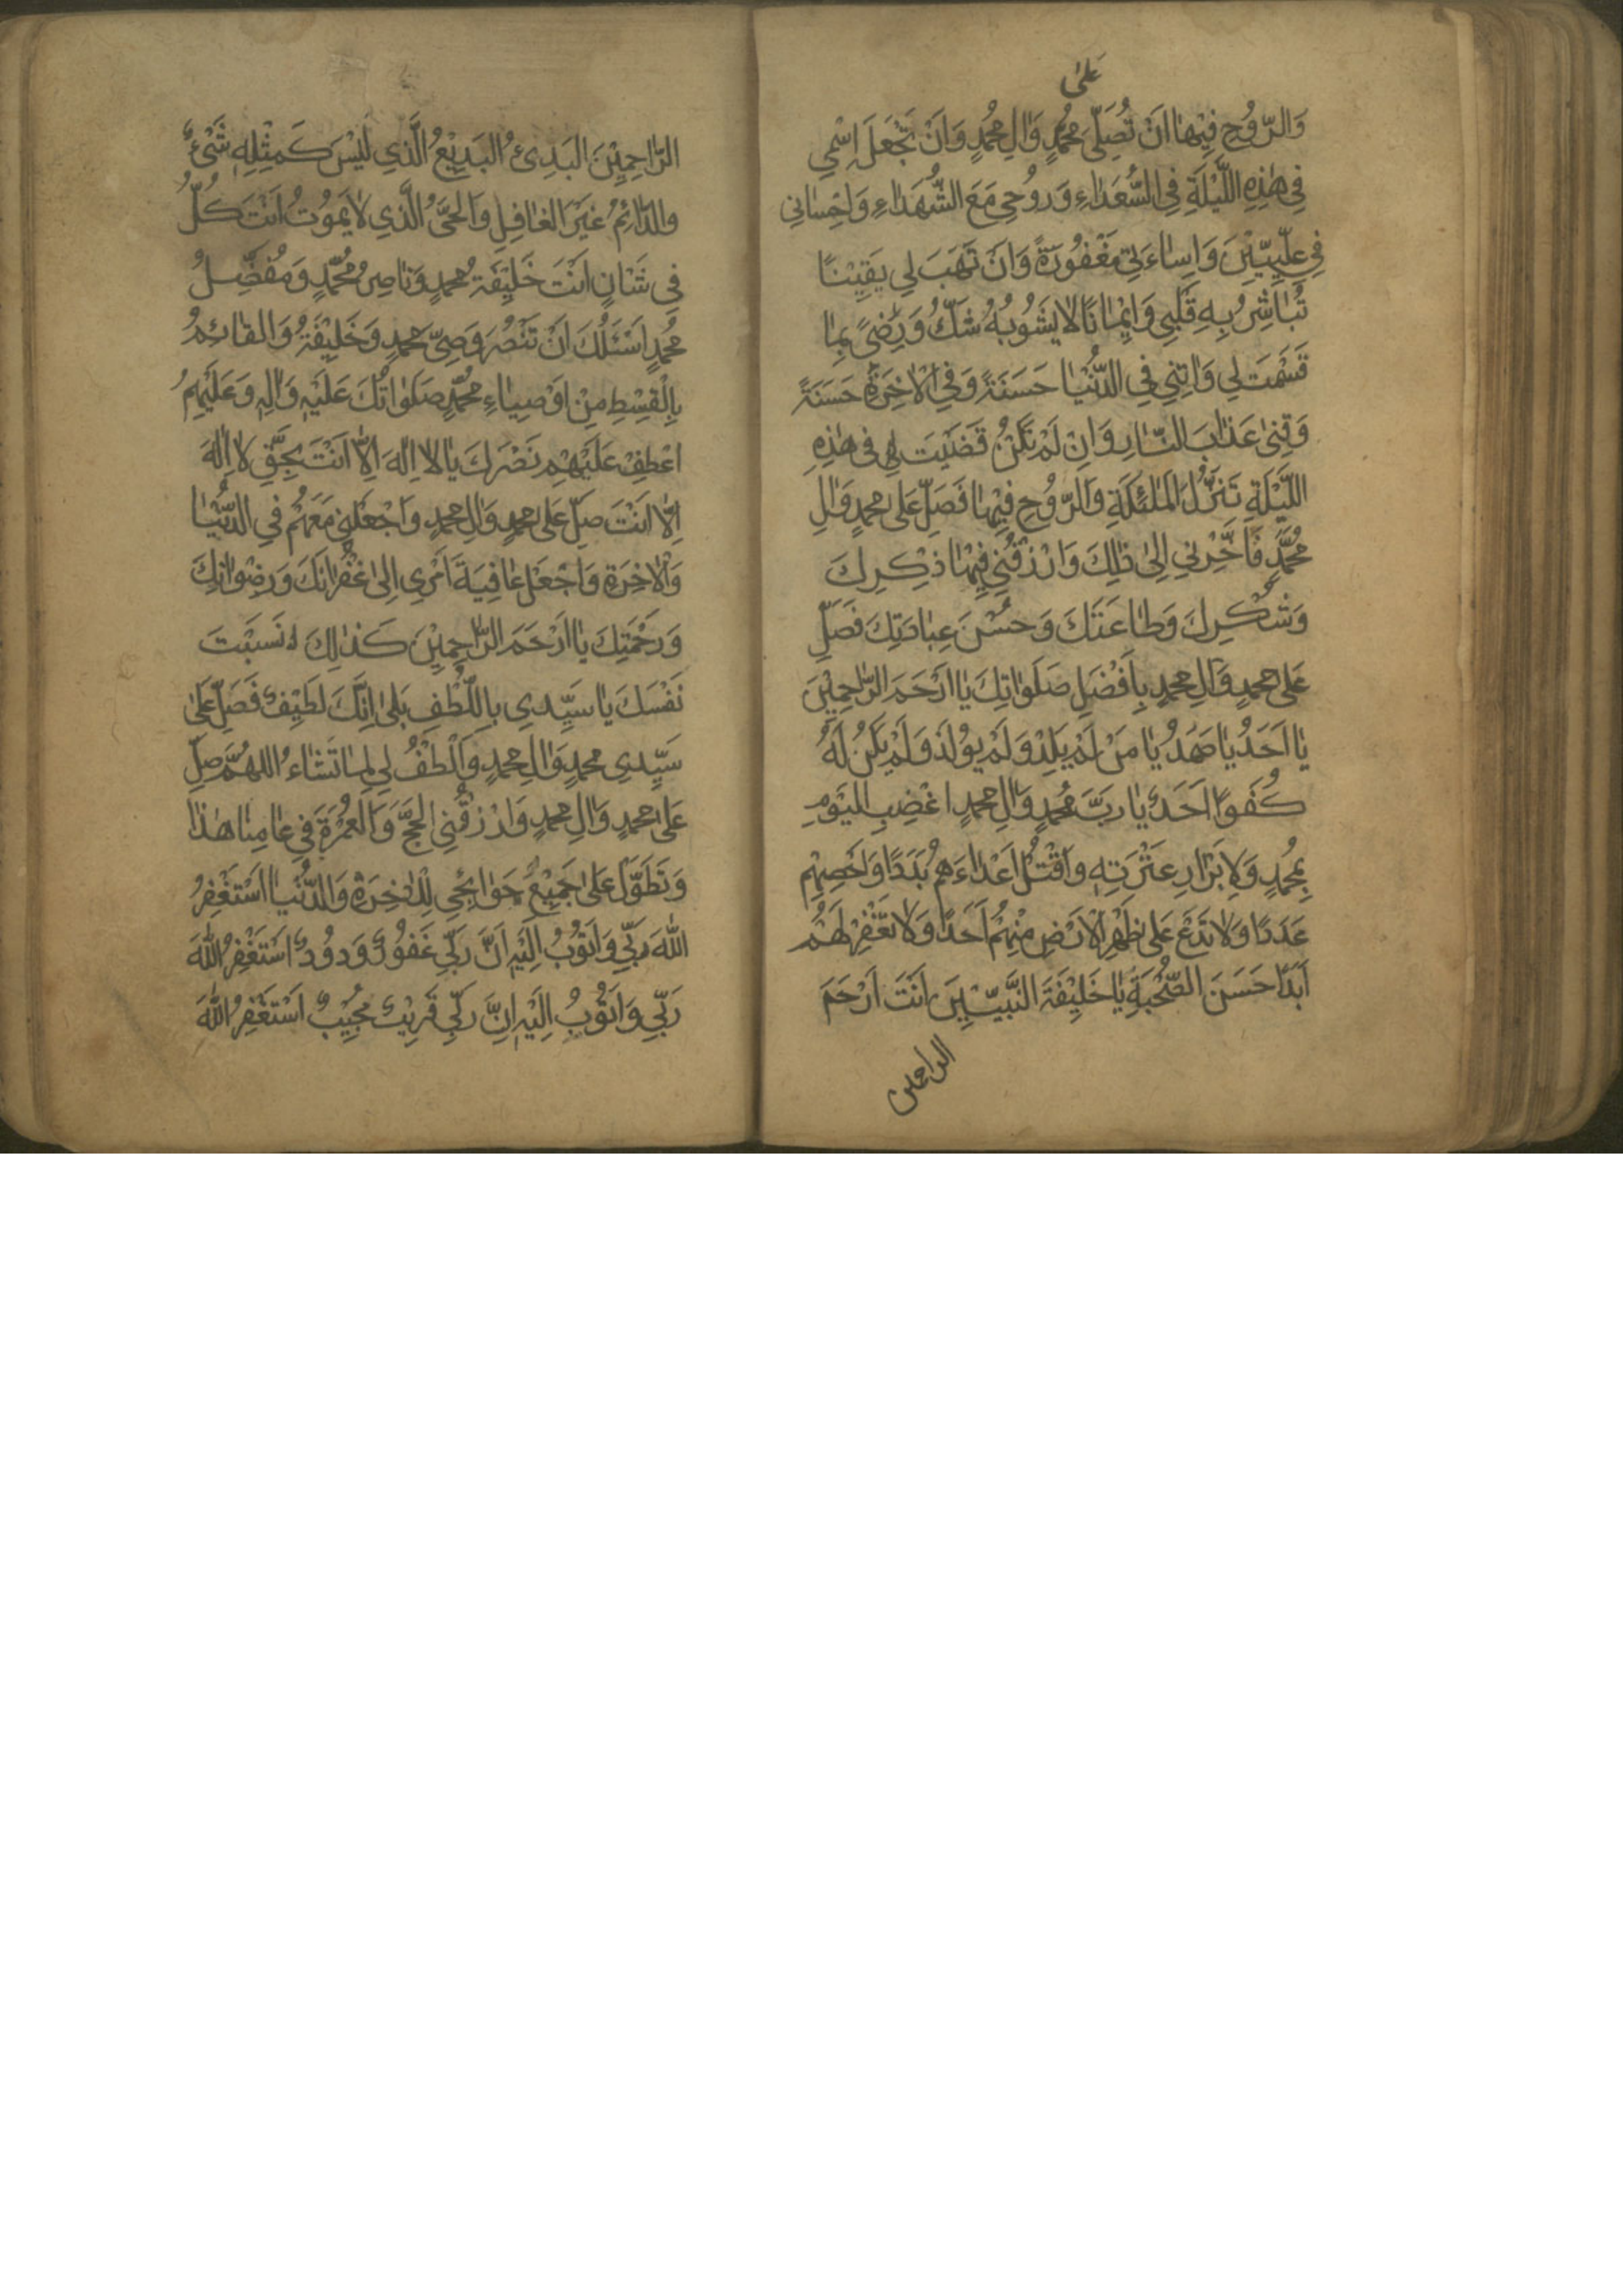 عَلىٰ
وَالرُّوُحِ فِيْهٰا اَنْ تُصَلِّىَ مُحَمَّدٍ وَاٰلِ مُحَمَّدٍ وَاَنْ تَجْعَلَ اِسْمِي
فِي هٰذِهِ اللَّيْلَةِ فِي السُّعَدٰاءِ وَرُوُحِي مَعَ الشُّهَدٰاءِ وَاِحْسٰانِي
فِي عِلِّيِّيْنَ وَاِسٰاءَتِي مَغْفُورَةً وَاَنْ تَهَبَ لِي يَقِيْنًا
تُبٰاشِرُ بِهِ قَلْبِي وَاِيْمٰانًا لاٰ يَشُوُبُهُ شَكٌّ وَرِضىً بِمٰا
قَسَمْتَ لِي وَاٰتِنِي فِي الدُّنْيٰا حَسَنَةً وَفِي الْاٰخِرَةِ حَسَنَةً
وَقِنِي عَذٰابَ النّٰارِ وَاِنْ لَمْ تَكُنْ قَضَيْتَ لِي فِي هٰذِهِ
اللَّيْلَةِ تَنَزُّلَ الْمَلٰئِكَةِ وَالرُّوُحِ فِيْهٰا فَصَلِّ عَلىٰ مُحَمَّدٍ وَاٰلِ
مُحَمَّدٍ فَاَخِّرْنِي اِلىٰ ذٰلِكَ وَارْزُقْنِي فِيْهٰا ذِكْرِكَ
وَشُكْرِكَ وَطٰاعَتَكَ وَحُسْنَ عِبٰادَتِكَ فَصَلِّ
عَلىٰ مُحَمَّدٍ وَاٰلِ مُحَمَّدٍ بِاَفْضَلِ صَلَوٰاتِكَ يٰا اَرْحَمَ الرّٰاحِمِيْنَ
يٰا اَحَدُ يٰا صَمَدُ يٰا مَنْ لَمْ يَلِدْ وَلَمْ يُولَدْ وَلَمْ يَكُنْ لَهُ
كُفُوًا اَحَدٌ يٰا رَبَّ مُحَمَّدٍ وَاٰلِ مُحَمَّدٍ اغْضِبِ الْيَوْمِ
بِمُحَمَّدٍ وَلِاَبْرٰارِ عِتْرَتِهِ وَاقْتُلْ اَعْدٰاءَهُمْ بَدَدًا وَاَحْصِهِمْ
عَدَدًا وَلاٰ تَدَعْ عَلىٰ ظَهْرِ الْاَرْضِ مِنْهُمْ اَحَدًا وَلاٰ تَغْفِرْ لَهُمْ
اَبَدًا حَسَنَ الصُّحْبَةِ يٰا خَلِيْفَةَ النَّبِيّٖيْنَ اَنْتَ اَرْحَمَ
الراحمين
الرّٰاحِمِيْنَ الْبَدِىءُ الْبَدِيْعُ الَّذِي لَيْسَ كَمِثْلِهِ شَيْءٌ
وَالدّٰائِمُ غَيْرَ الْغٰافِلِ وَالْحَىُّ الَّذِي لاٰ يَمُوتُ اَنْتَ كُلُّ
فِي شَاْنٍ اَنْتَ خَلِيْفَةُ مُحَمَّدٍ وَنٰاصِرُ مُحَمَّدٍ وَمُفَضِّلُ
مُحَمَّدٍ اَسْئَلُكَ اَنْ تَنْصُرَ وَصِىَّ مُحَمَّدٍ وَخَلِيْفَةُ وَالْقٰائِمُ
بِالْقِسْطِ مِنْ اَوْصِيٰاءِ مُحَمَّدٍ صَلَوٰاتُكَ عَلَيْهِ وَاٰلِهِ وَعَلَيْهِمُ
اعْطِفْ عَلَيْهِمْ نَصْرَكَ يٰا لاٰ اِلٰهَ اِلّٰا اَنْتَ بِحَقِّ لاٰ اِلٰهَ
اِلّٰا اَنْتَ صَلِّ عَلىٰ مُحَمَّدٍ وَاٰلِ مُحَمَّدٍ وَاجْعَلْنِي مَعَهُمْ فِي الدُّنْيٰا
وَالْاٰخِرَةِ وَاجْعَلْ عٰافِيَةَ اَمْرِي اِلىٰ غُفْرٰانَكَ وَرِضْوٰانِكَ
وَرَحْمَتِكَ يٰا اَرْحَمَ الرّٰاحِمِيْنَ كَذٰلِكَ نَسَبْتَ
نَفْسَكَ يٰا سَيِّدِي بِاللُّطْفِ بَلىٰ اِنَّكَ لَطِيْفٌ فَصَلِّ عَلىٰ
سَيِّدِي مُحَمَّدٍ وَاٰلِ مُحَمَّدٍ وَالْطُفْ لِي لِمٰا تَشٰاءُ اللّٰهُمَّ صَلِّ
عَلىٰ مُحَمَّدٍ وَاٰلِ مُحَمَّدٍ وَارْزُقْنِي الْحَجَّ وَالْعُمْرَةَ فِي عٰامِنٰا هٰذٰا
وَتَطَوَّلْ عَلىٰ جَمِيْعِ حَوٰائِجِي لِلْاٰخِرَةِ وَالدُّنْيٰا اَسْتَغْفِرُ
اللّٰهَ رَبِّي وَاَتُوُبُ اِلَيْهِ اَنَّ رَبِّي غَفُوُرٌ وَدُوُدٌ اَسْتَغْفِرُ اللّٰهَ
رَبِّي وَاَتُوُبُ اِلَيْهِ اِنَّ رَبِّي قَرِيْبٌ مُجِيْبٌ اَسْتَغْفِرُ اللّٰهَ